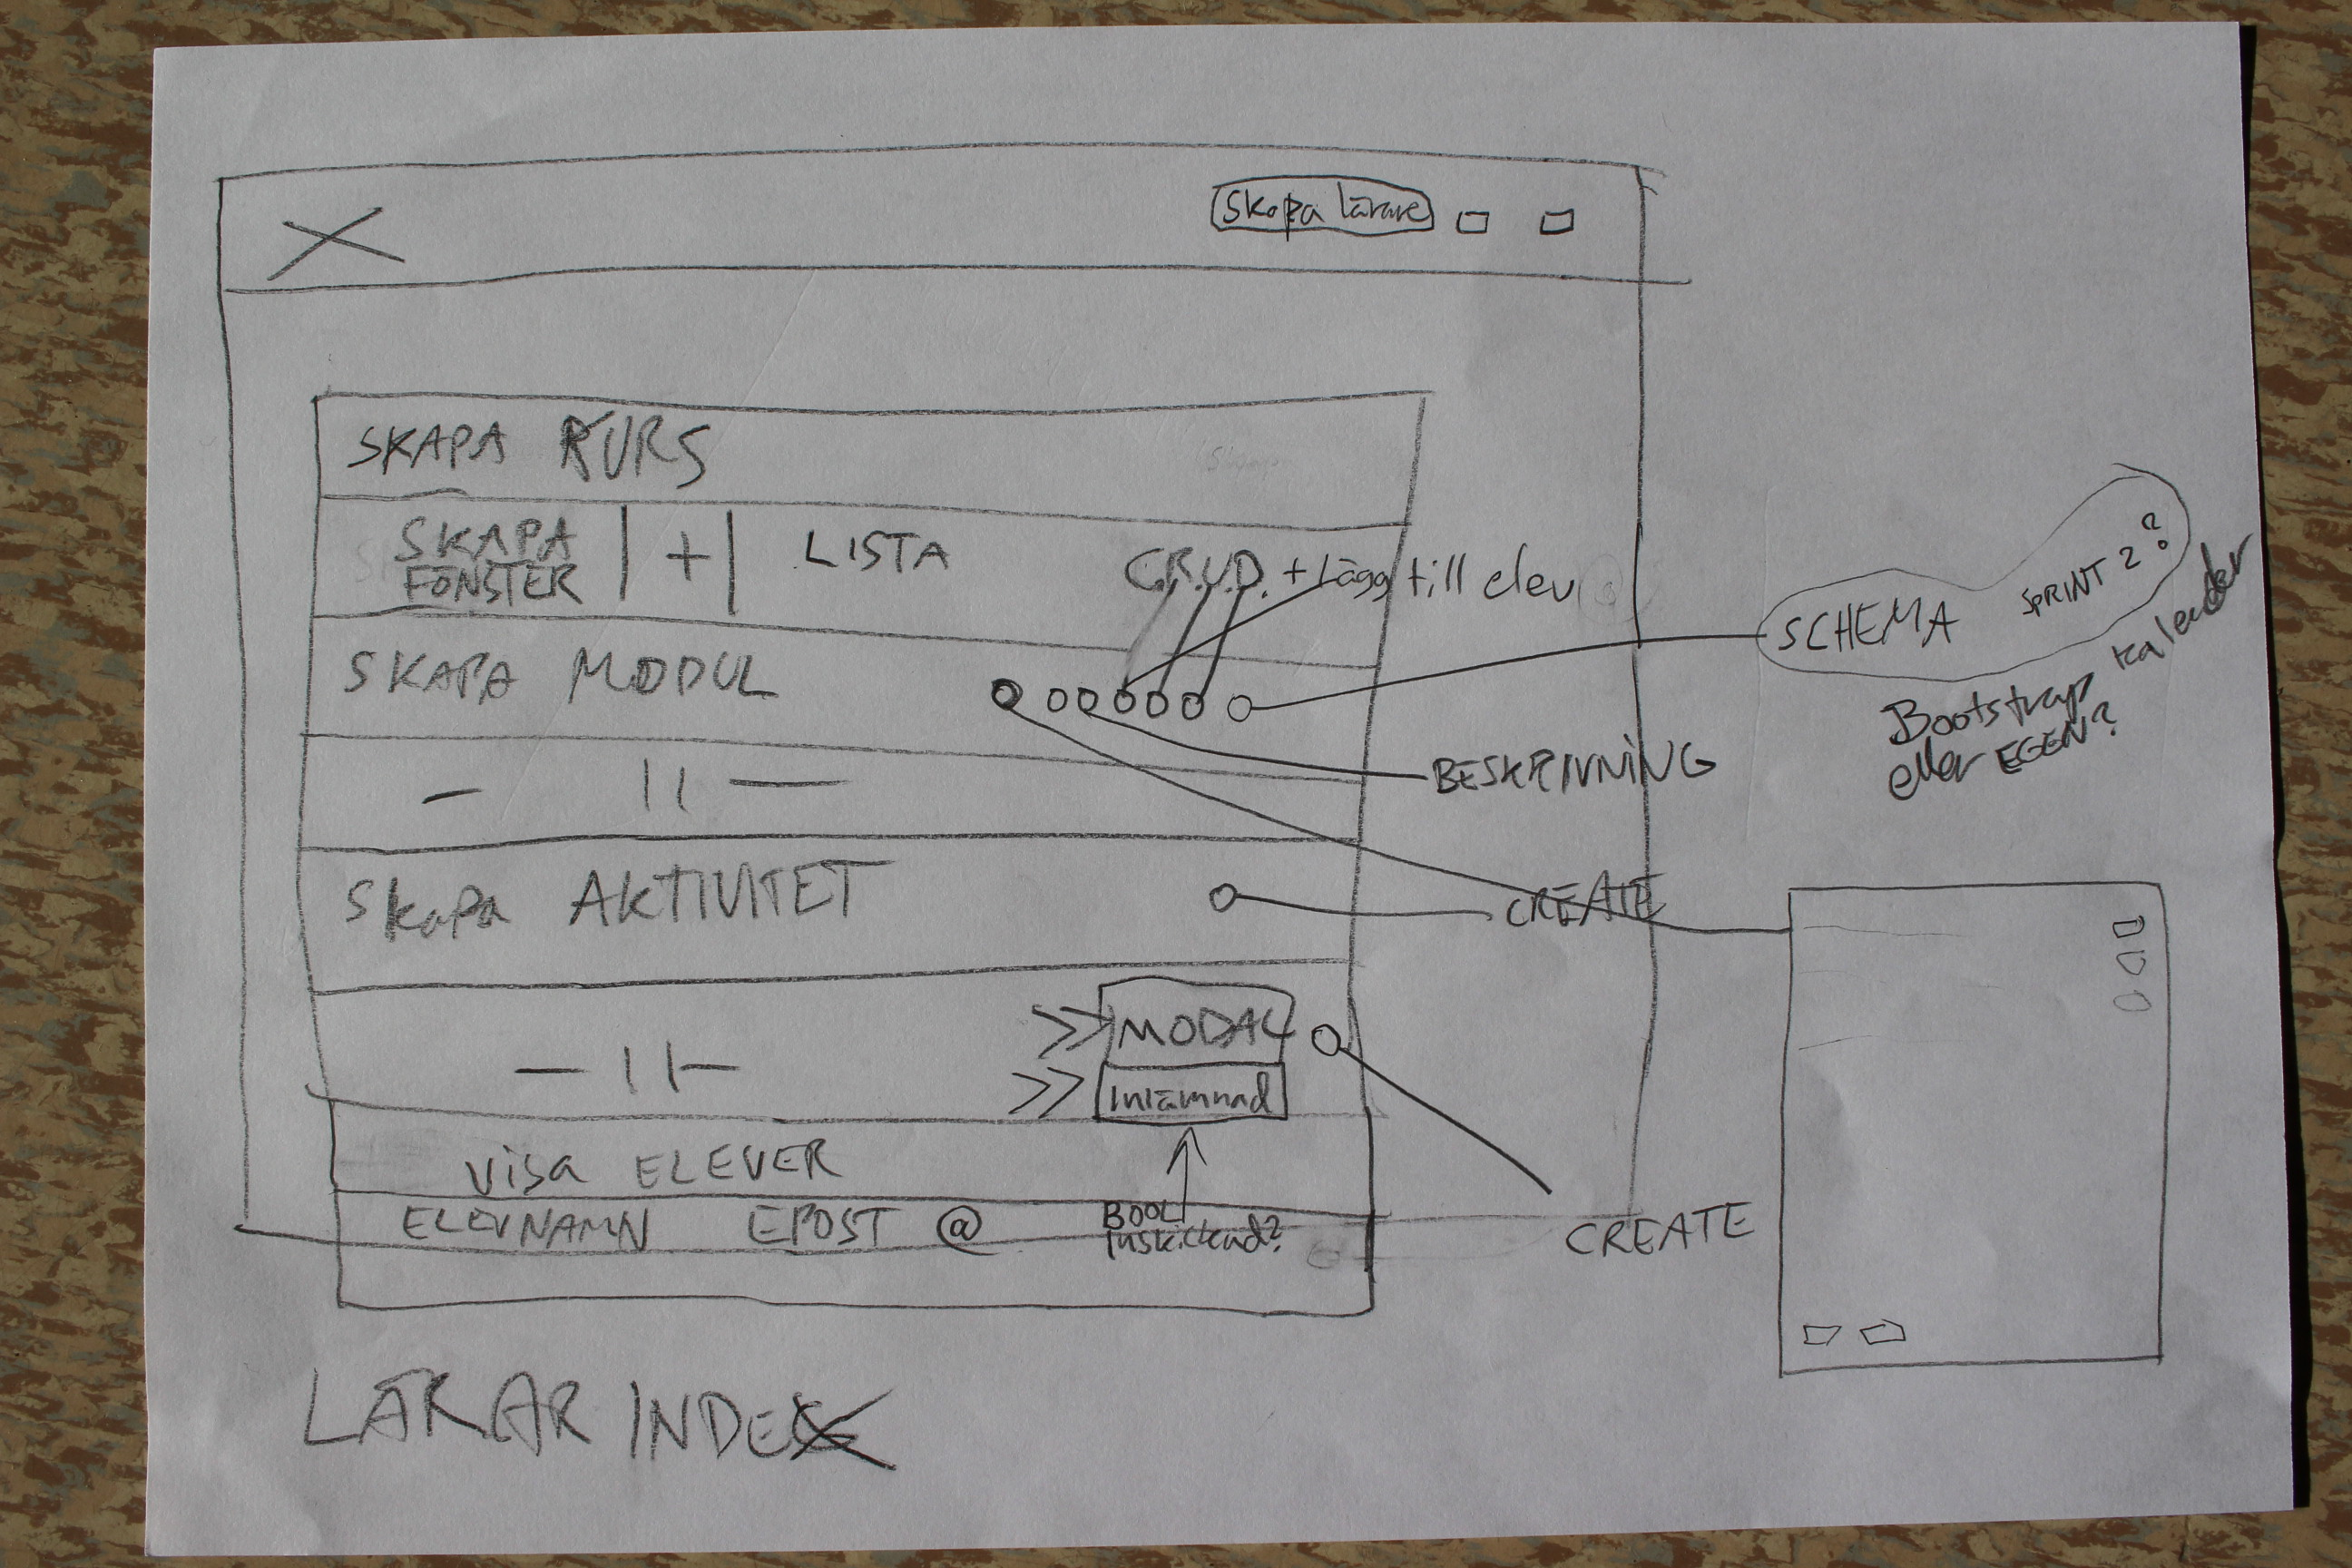 Skapa lärare
SKAPA KURS
SKAPA
FÖNSTER
+
LISTA
C.R.U.D. + Lägg till elev
SCHEMA SPRINT 2?
Bootstrap kalender
eller EGEN?
SKAPA MODUL
BESKRIVNING
— || —
Skapa AKTIVITET
CREATE
— || —
>> MODAL
>> Inlämnad
CREATE
Visa ELEVER
ELEVNAMN EPOST @
BOOL
Inskickad?
LÄRAR INDEX